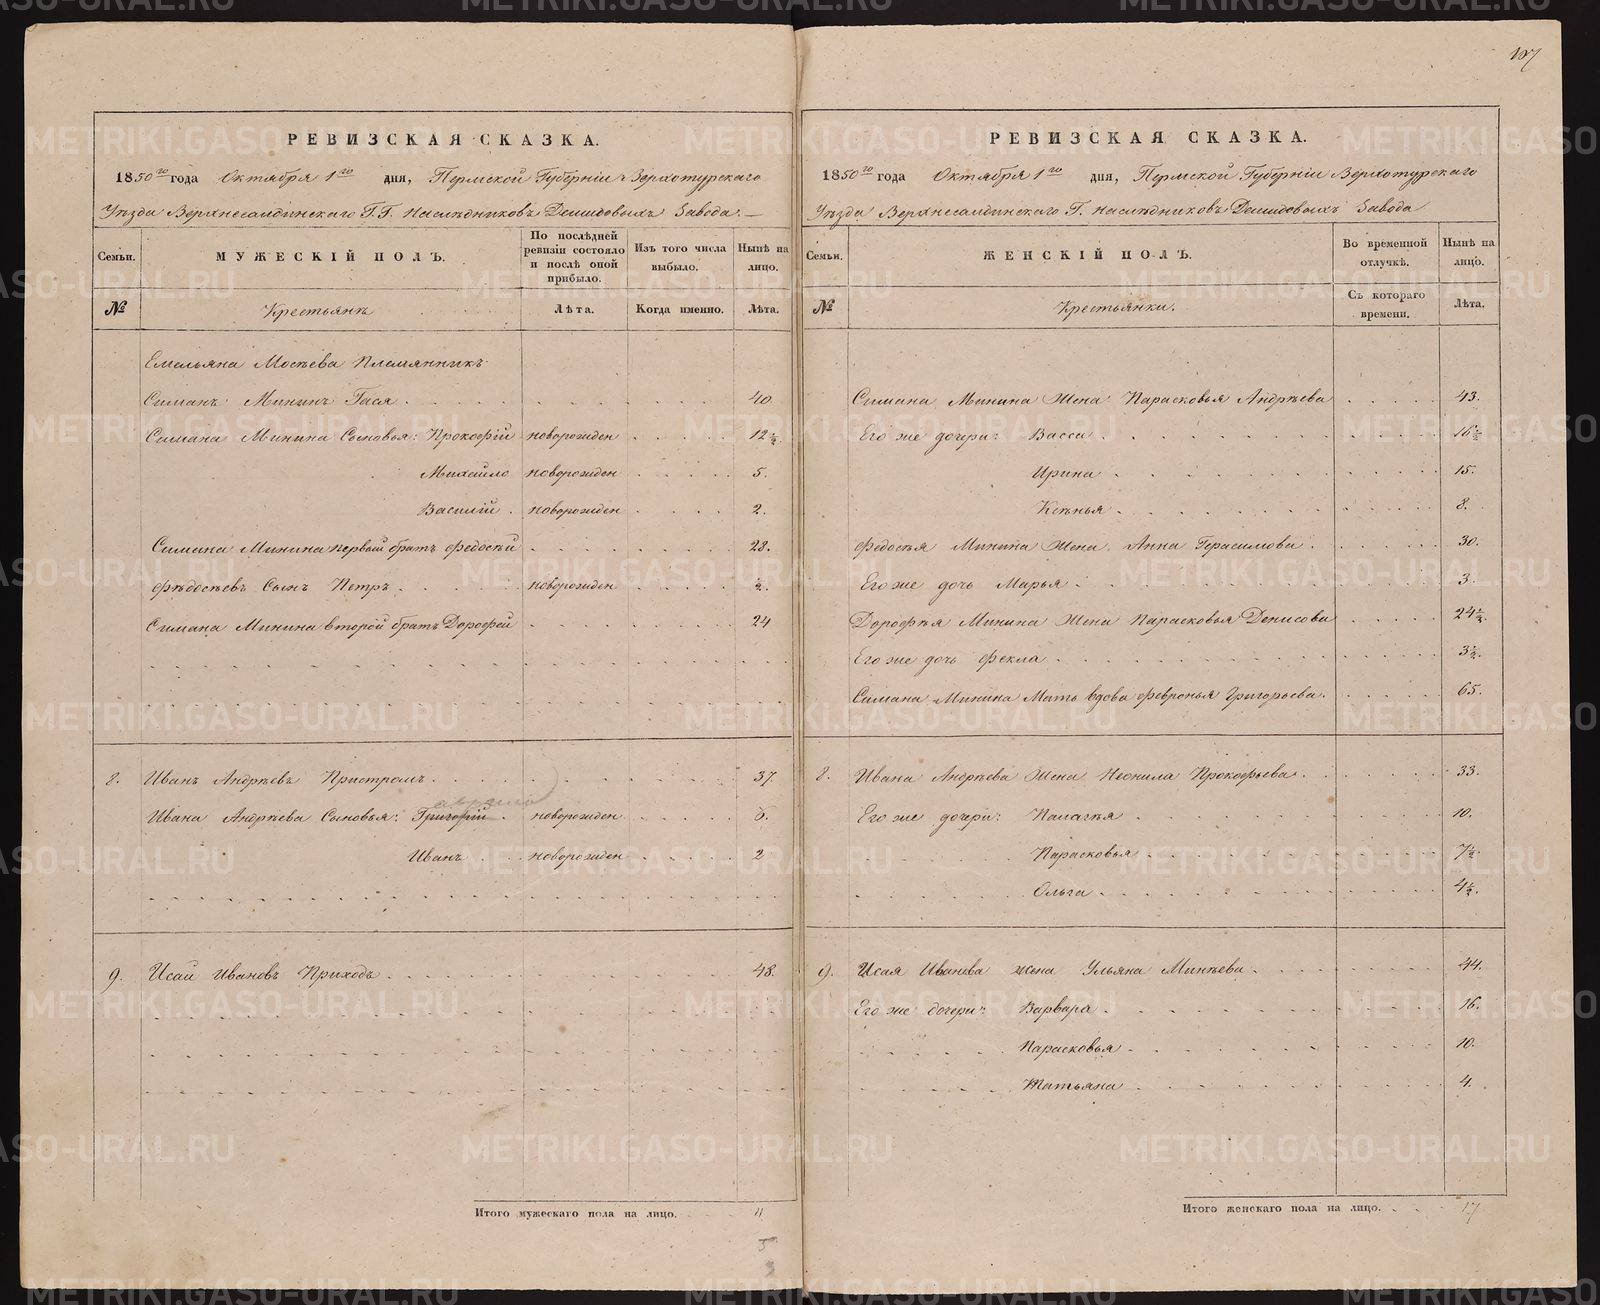 107
РЕВИЗСКАЯ СКАЗКА.
1850го года Октября 1го дня, Пермской Губернии Верхотурскаго
Уѣзда Верхнесалдинскаго Г.Г. Наслѣдниковъ Демидовыхъ Завода
Семьи.
МУЖЕСКІЙ ПОЛЪ.
По послѣдней ревизіи состояло и послѣ оной прибыло.
Изъ того числа выбыло.
Нынѣ на лицо.
№
Крестьянъ
Лѣта.
Когда именно.
Лѣта.
Емельяна Мосѣева Племянникъ
Симанъ Мининъ Гася 40.
Симана Минина Сыновья: Прокофій новорожден 12½
Михайло новорожден 5.
Василій новорожден 2.
Симана Минина первой братъ Федосѣй 28.
Фѣдосѣевъ Сынъ Петръ новорожден ½.
Симана Минина второй братъ Дорофей 24
8. Иванъ Андрѣевъ Пристромъ 37.
Ивана Андрѣева Сыновья: Григорій новорожден 6.
Иванъ новорожден 2
9. Исай Ивановъ Приходъ 48.
Итого мужескаго пола на лицо. 11
5
3
РЕВИЗСКАЯ СКАЗКА.
1850го года Октября 1го дня, Пермской Губерніи Верхотурскаго
Уѣзда Верхнесалдинскаго Г. наслѣдниковъ Демидовыхъ Завода
Семьи.
ЖЕНСКІЙ ПОЛЪ.
Во временной отлучкѣ.
Нынѣ на лицо.
№
Крестьянки.
Съ котораго времени.
Лѣта.
Симана Минина Жена Парасковья Андрѣева 43.
Его же дочери: Васса 16½
Ирина 15.
Ксѣнья 8.
Федосѣя Минина Жена Анна Герасимова 30.
Его же дочь Марья 3.
Дорофѣя Минина Жена Парасковья Денисова 24½.
Его же дочь Фекла 3½.
Симана Минина Мать вдова Февронья Григорьева. 65.
8. Ивана Андрѣева Жена Неонила Прокофьева 33.
Его же дочери: Палагѣя 10.
Парасковья 7½.
Ольга 4½.
9. Исая Иванова жена Ульяна Минѣева 44.
Его же дочери: Варвара 16.
Парасковья 10.
Татьяна 4.
Итого женскаго пола на лицо. 17
METRIKI.GASO-URAL.RU